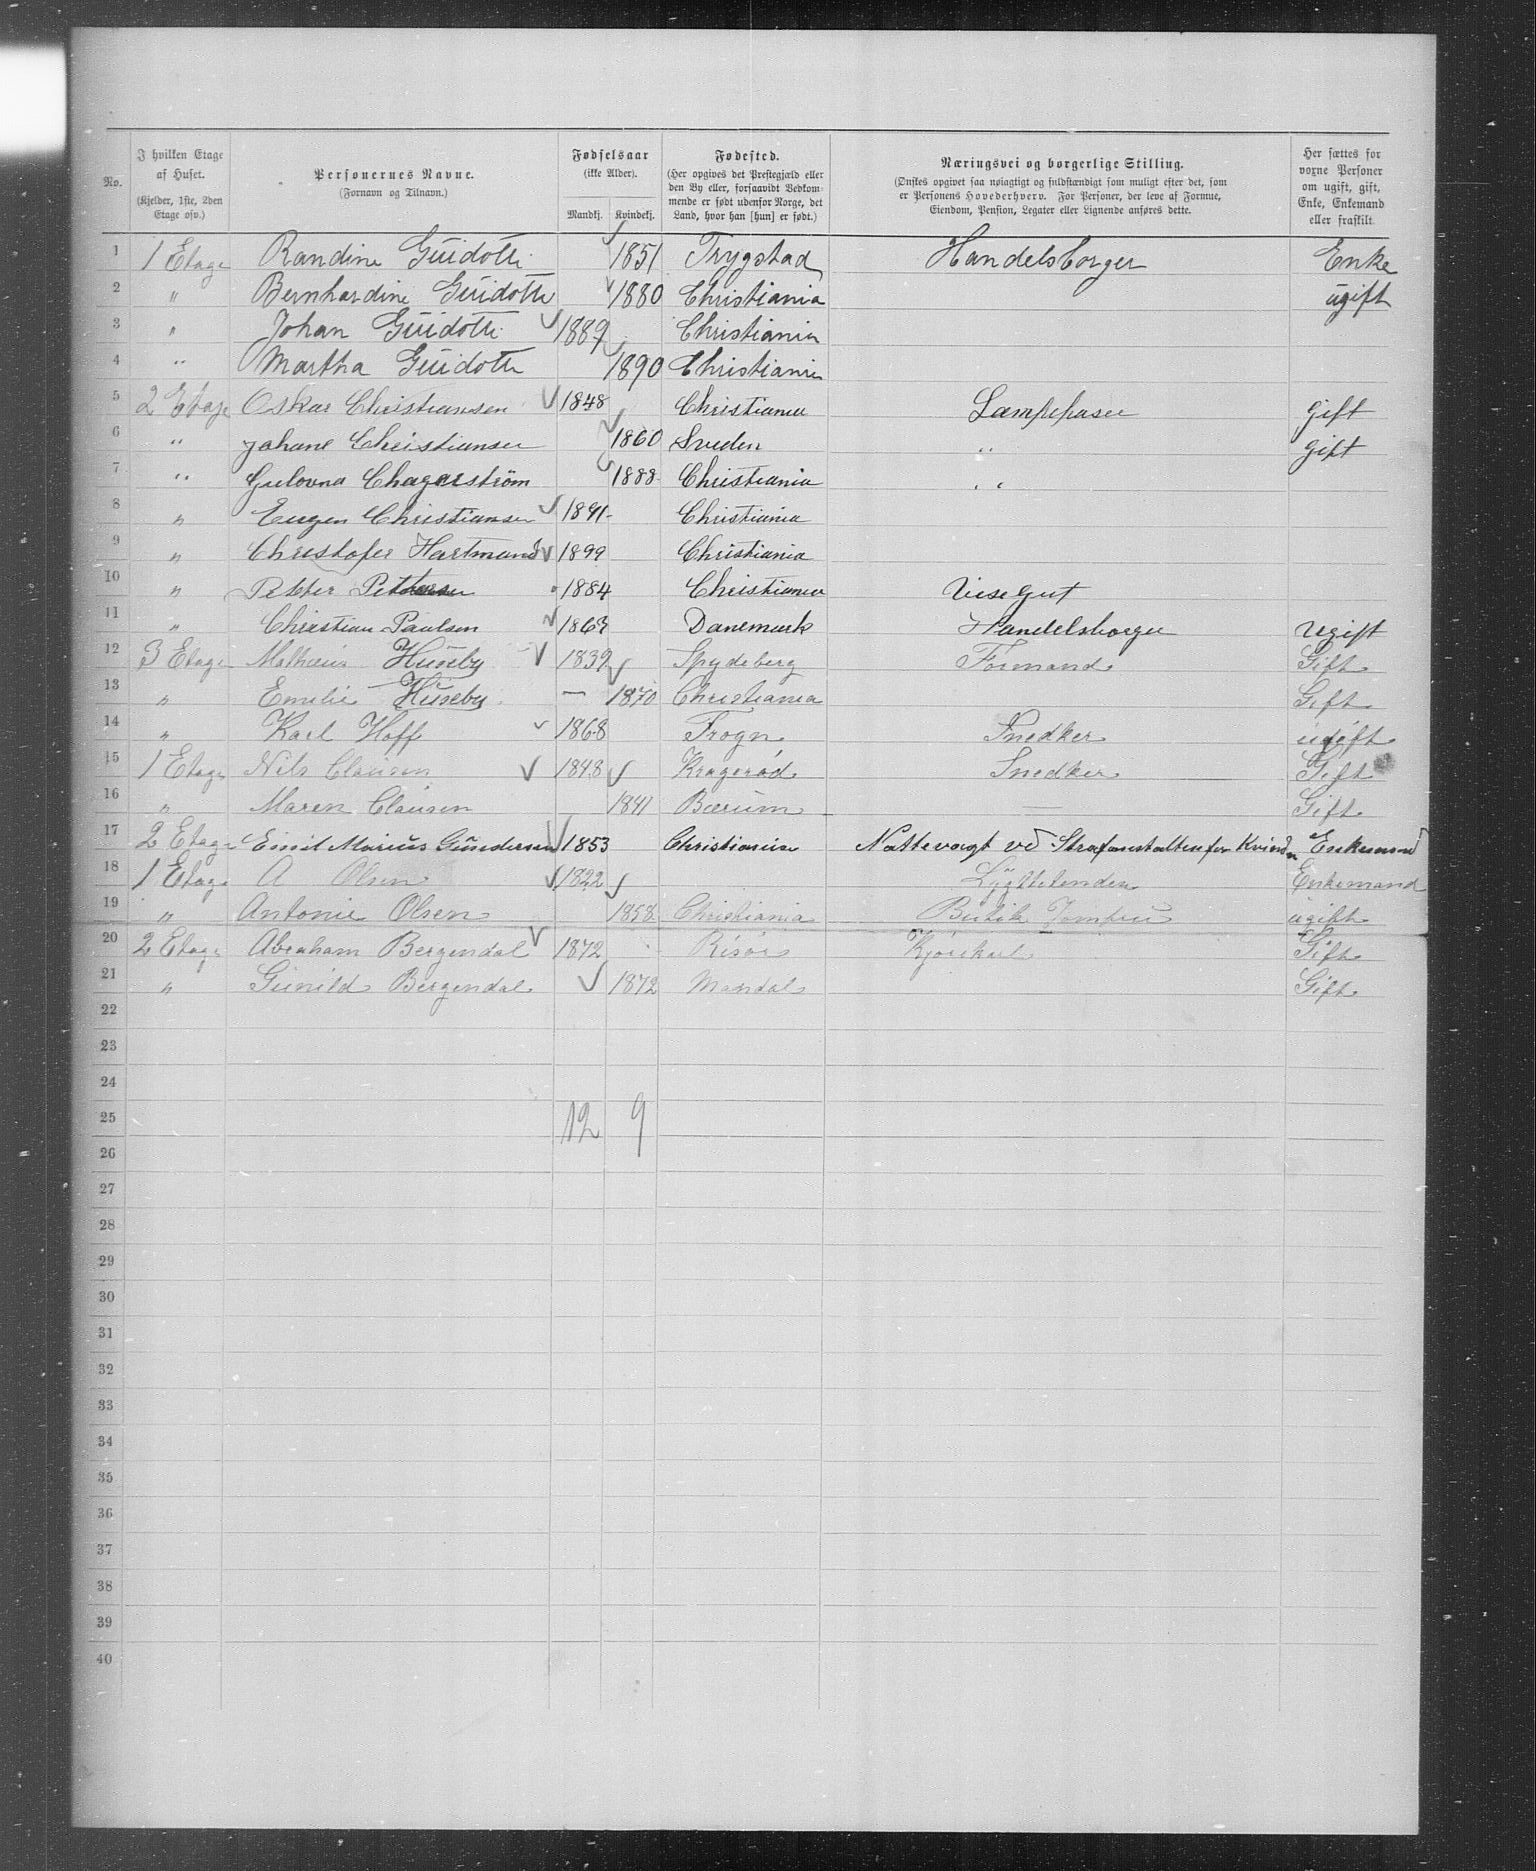 No.
I hvilken Etage af Huset. (Kjelder, 1ste, 2den Etage osv.)
Personernes Navne. (Fornavn og Tilnavn.)
Fødselsaar (ikke Alder). Mandkj. Kvindekj.
Fødested. (Her opgives det Prestegjæld eller den By eller, forsaavidt Vedkommende er født udenfor Norge, det Land, hvor han [hun] er født.)
Næringsvei og borgerlige Stilling. (Ønskes opgivet saa nøiagtigt og fuldstændigt som muligt efter det, som er Personens Hovederhverv. For Personer, der leve af Formue, Eiendom, Pension, Legater eller Lignende anføres dette.)
Her sættes for voxne Personer om ugift, gift, Enke, Enkemand eller fraskilt.
1 1 Etage Randine Guidotti 1851 Trygstad Handelsborger Enke
2 " Bernhardine Guidotti 1880 Christiania ugift
3 " Johan Guidotti 1889 Christiania
4 " Martha Guidotti 1890 Christiania
5 2 Etage Oskar Christiansen 1848 Christiania Lampepaser gift
6 " Johane Christiansen 1860 Sveden " gift
7 " 1888 Christiania "
8 " Eugen Christiansen 1891 Christiania
9 " Christofer Hartmand 1899 Christiania
10 " Petter Pettersen 1884 Christiania Visegut
11 " Christian Paulsen 1863 Danemark Handelsborger Ugift
12 3 Etage Mathæus Huseby 1839 Spydeberg Formand Gift
13 " Emilie Huseby — 1870 Christiania Gift
14 " Karl Hoff 1868 Frogn Snedker ugift
15 1 Etage Nils Clausen 1848 Kragerød Snedker Gift
16 " Maren Clausen 1841 Bærum — Gift
17 2 Etage Emil Marius Gundersen 1853 Christiania Nattevagt ved Strafanstalten for Kvinder Enkemand
18 1 Etage A Olsen 1822 Lygttetender Enkemand
19 " Antonie Olsen 1858 Christiania Butik Jomfru ugift
20 2 Etage Abraham Bergendal 1872 Risør Kjørekarl Gift
21 " Gunild Bergendal 1872 Mandal Gift
22
23
24
25 12 9
26
27
28
29
30
31
32
33
34
35
36
37
38
39
40